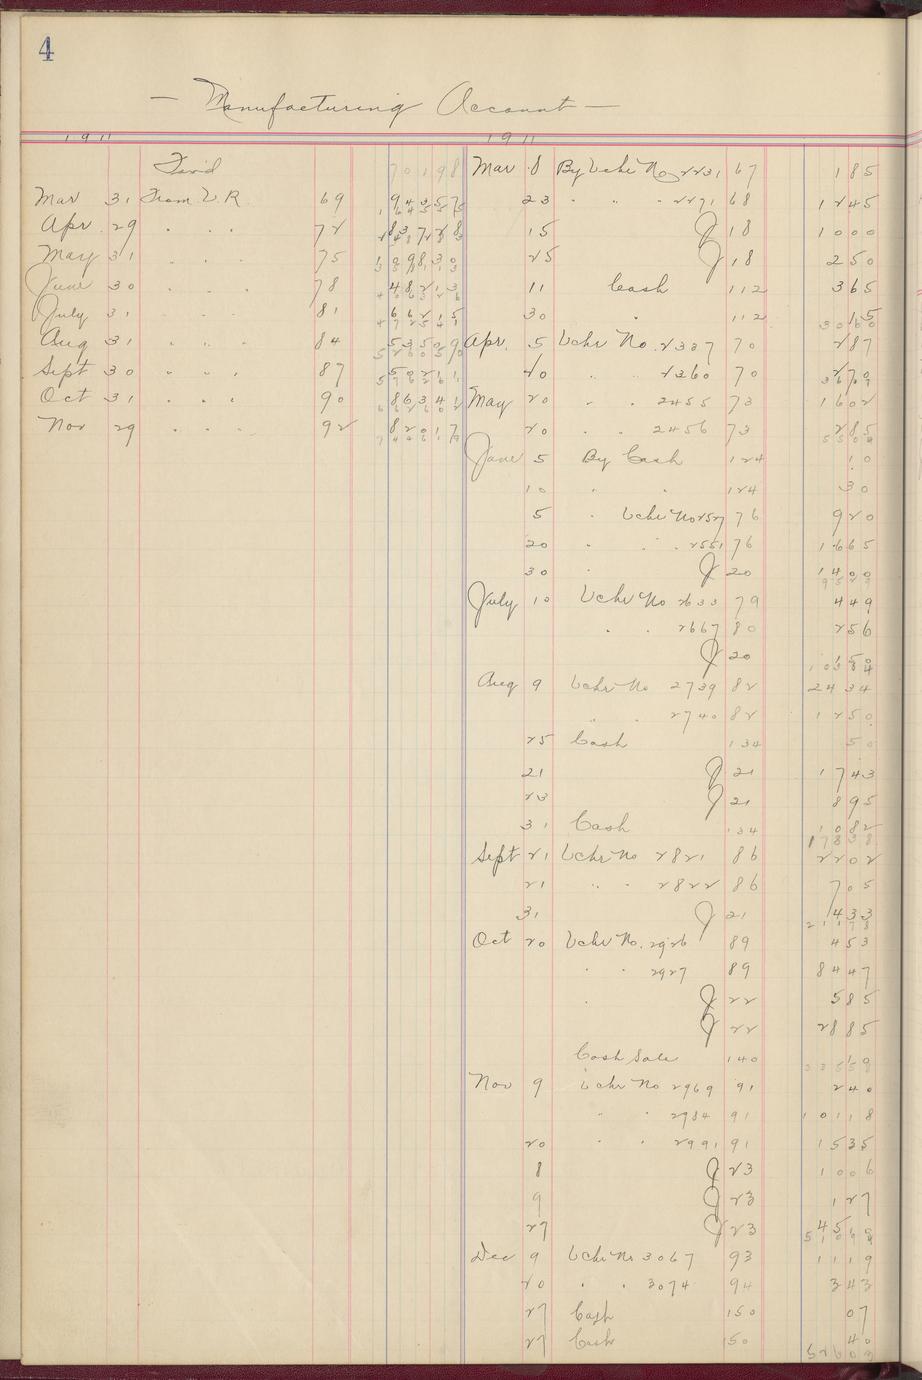 4
— Manufacturing Account —
1911
For'd 70198
Mar 31 From V.R. 69 94357
Apr 29 " " " 72 83728
May 31 " " " 75 109830
June 30 " " " 78 48213
July 31 " " " 81 66215
Aug 31 " " " 84 53509
Sept 30 " " " 87 50211
Oct 31 " " " 90 86341
Nov 29 " " " 92 82017
1911
Mar 8 By Vchr No 2231 67 185
23 " " " 2271 68 1245
15 J 18 1000
25 J 18 250
11 Cash 112 365
30 " 112 15
3060
Apr. 5 Vchr No. 2337 70 287
20 " " 2360 70 270
May 20 " " 2455 73 1602
20 " " 2456 73 285
June 5 By Cash 124 10
10 " " 124 30
5 " Vchr No 2527 76 920
20 " " " 2551 76 1665
30 " J 20 1400
July 10 Vchr No 2633 79 449
" " 2667 80 256
J 20 150
Aug 9 Vchr No 2739 82 2434
" " 2740 82 1250
25 Cash 134 50
21 J 21 1743
23 J 21 895
31 Cash 134 1082
17838
Sept 21 Vchr No 2821 86 2202
21 " " 2822 86 705
31 J 21 433
21178
Oct 20 Vchr No. 2926 89 453
" " 2927 89 8447
" J 22 585
J 22 2885
Cash Sale 140 19
Nov 9 Vchr No 2969 91 240
" " 2984 91 10118
20 " " 2991 91 1535
8 J 23 1006
9 J 23 127
27 J 23 45
Dec 9 Vchr No 3067 93 1119
20 " " 3074 94 343
27 Cash 150 07
27 Cash 150 40
52603